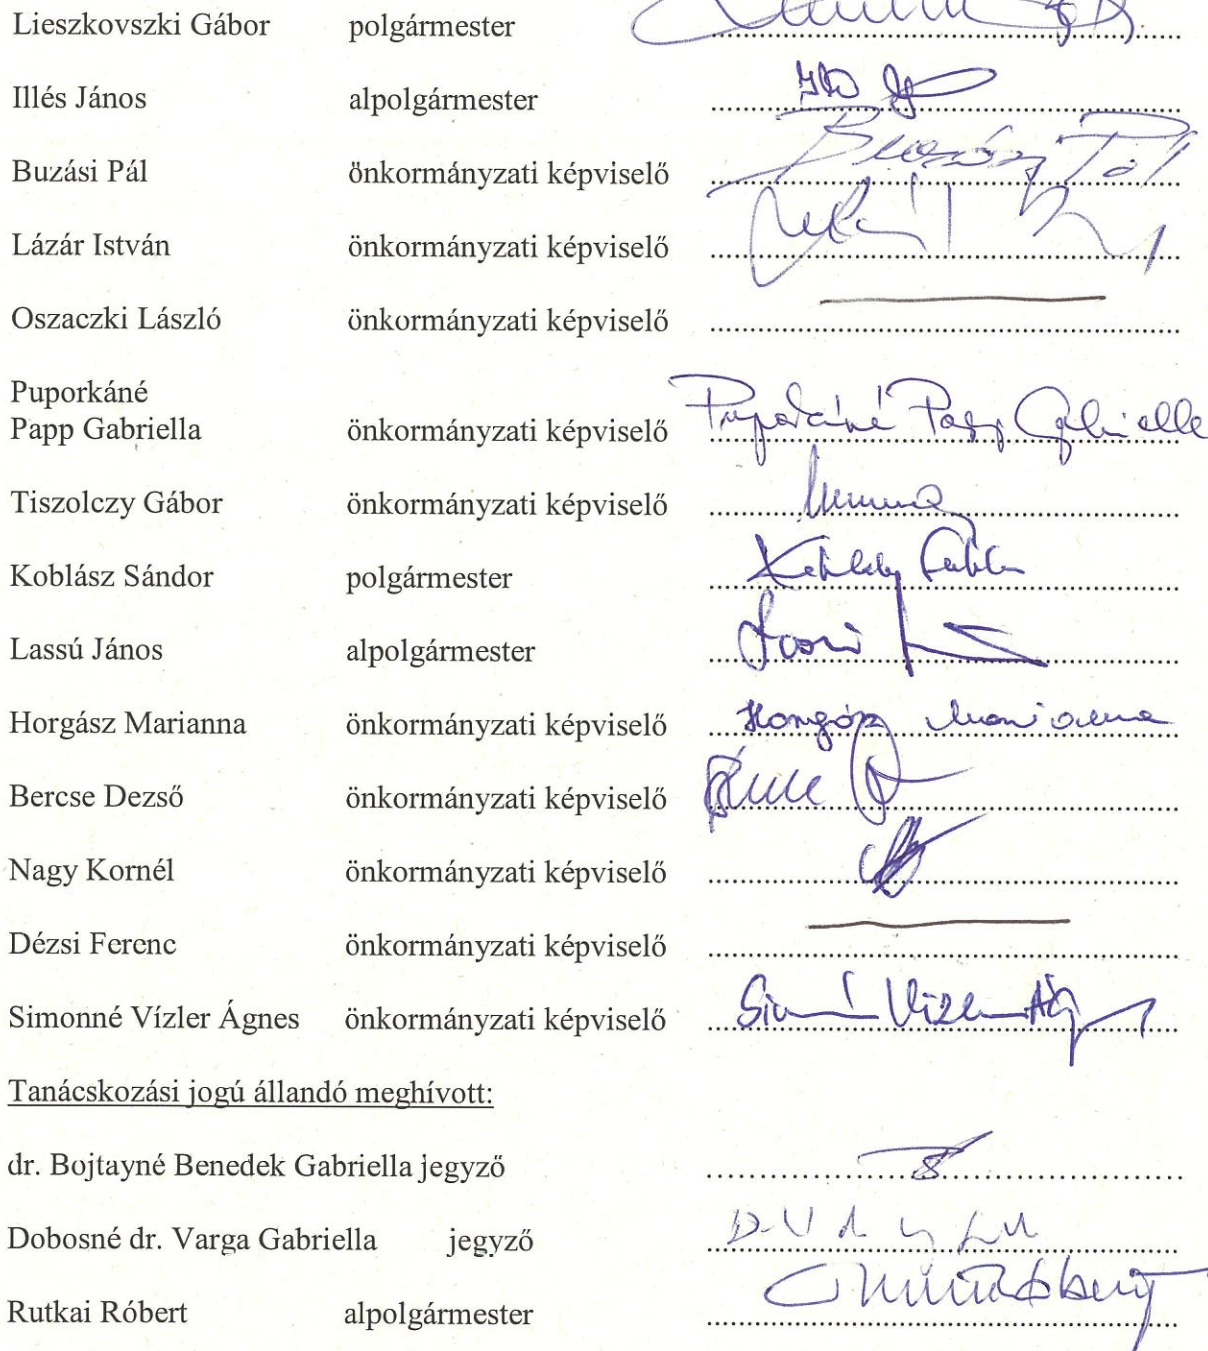 Lieszkovszki Gábor polgármester
Illés János alpolgármester
Buzási Pál önkormányzati képviselő Buzási Pál
Lázár István önkormányzati képviselő
Oszaczki László önkormányzati képviselő
Puporkáné
Papp Gabriella önkormányzati képviselő Puporkáné Papp Gabriella
Tiszolczy Gábor önkormányzati képviselő
Koblász Sándor polgármester
Lassú János alpolgármester
Horgász Marianna önkormányzati képviselő Horgász Marianna
Bercse Dezső önkormányzati képviselő
Nagy Kornél önkormányzati képviselő
Dézsi Ferenc önkormányzati képviselő
Simonné Vízler Ágnes önkormányzati képviselő
Tanácskozási jogú állandó meghívott:
dr. Bojtayné Benedek Gabriella jegyző
Dobosné dr. Varga Gabriella jegyző
Rutkai Róbert alpolgármester